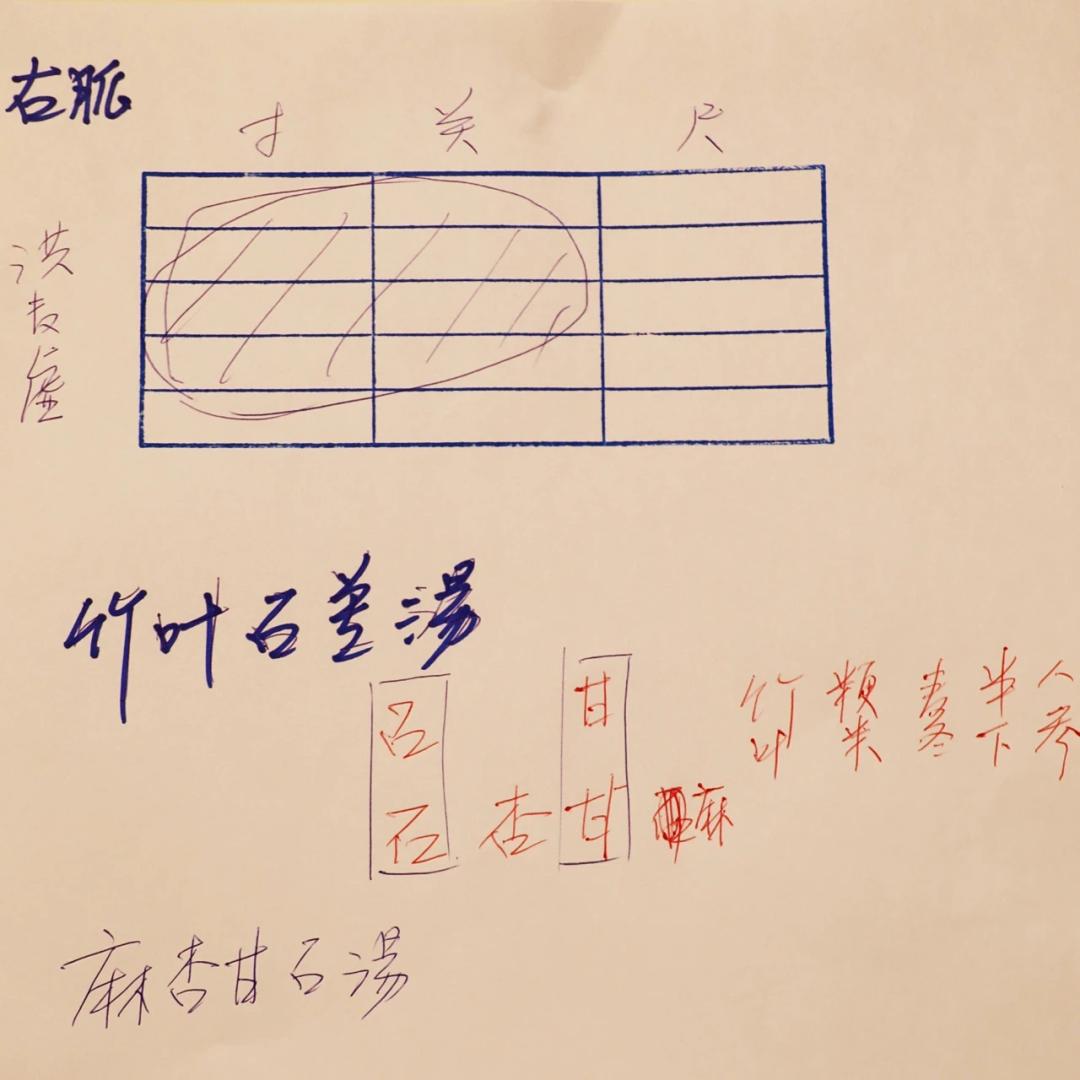 右脈
寸 关 尺
洪
去
虚
竹叶石羔湯
石 甘 竹叶 粳米 麦冬 半下 人参
石 杏 甘 麻
麻杏甘石湯